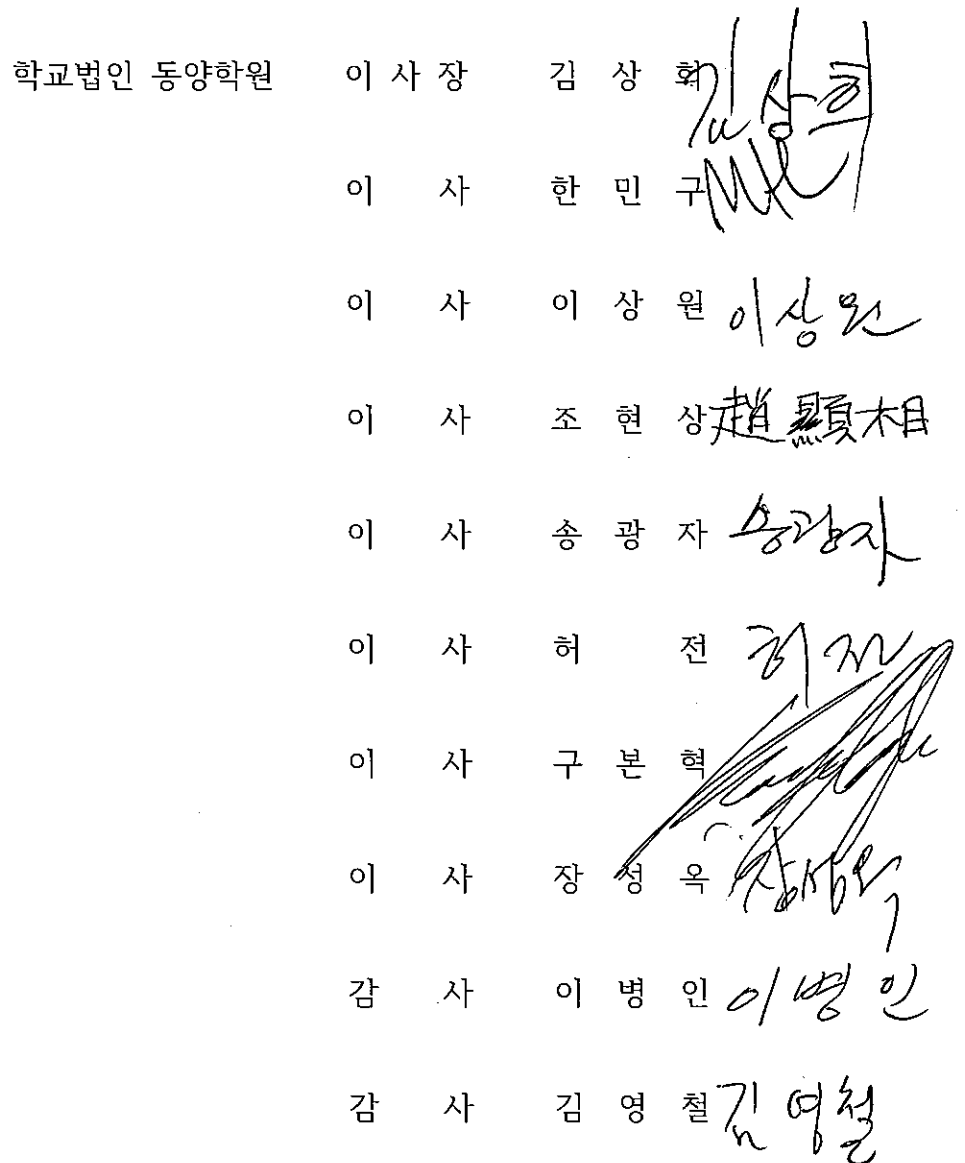 학교법인 동양학원 이 사 장 김 상 화 김상희
이 사 한 민 구
이 사 이 상 원 이상원
이 사 조 현 상 趙顯相
이 사 송 광 자 송광자
이 사 허 전 허전
이 사 구 본 혁
이 사 장 성 옥 장성옥
감 사 이 병 인 이병인
감 사 김 영 철 김영철